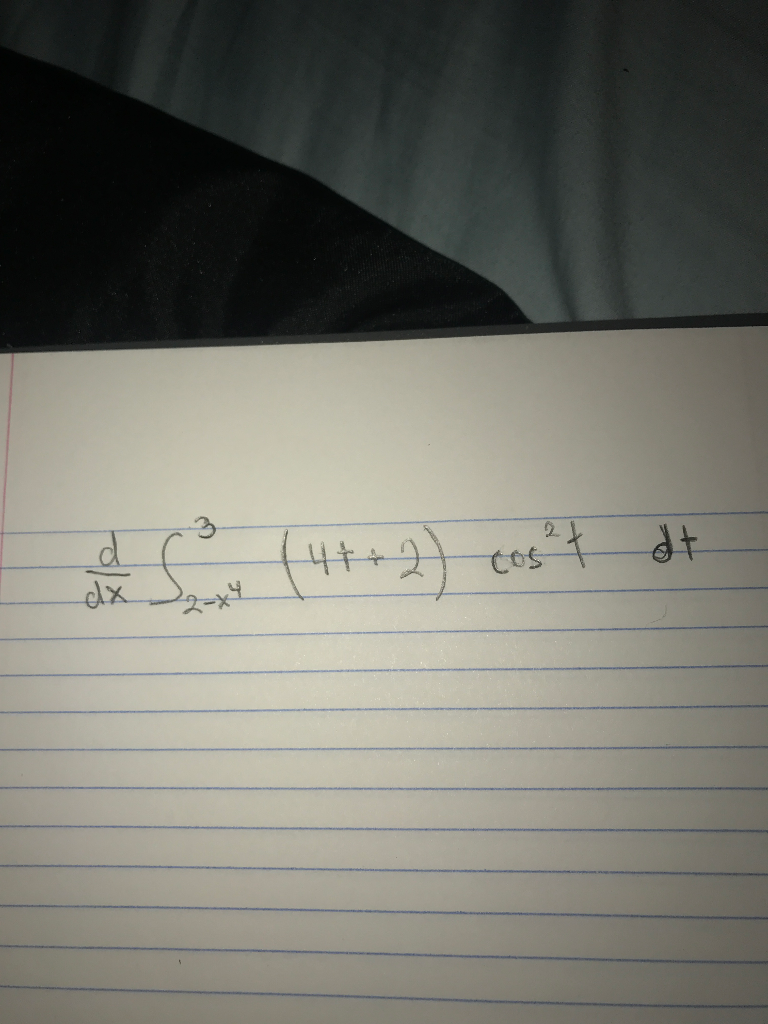 d/dx ∫_{2-x^4}^{3} (4t+2) cos²t dt